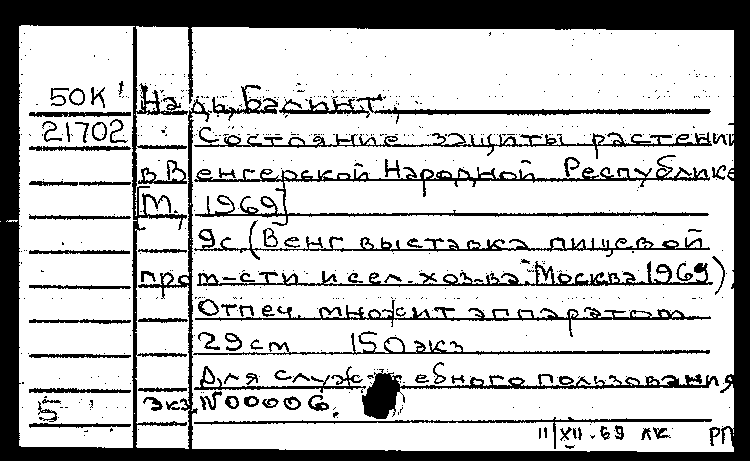 50К Надь, Балинт,
21702 Состояние защиты растений
в Венгерской Народной Республике
[М., 1969]
9с. (Венг. выставка пищевой
пром-сти и сел. хоз-ва. Москва 1969).
Отпеч. множит. аппаратом
29см 150 экз
Для служебного пользования
5 экз. N00006.
11/XII-69 РП